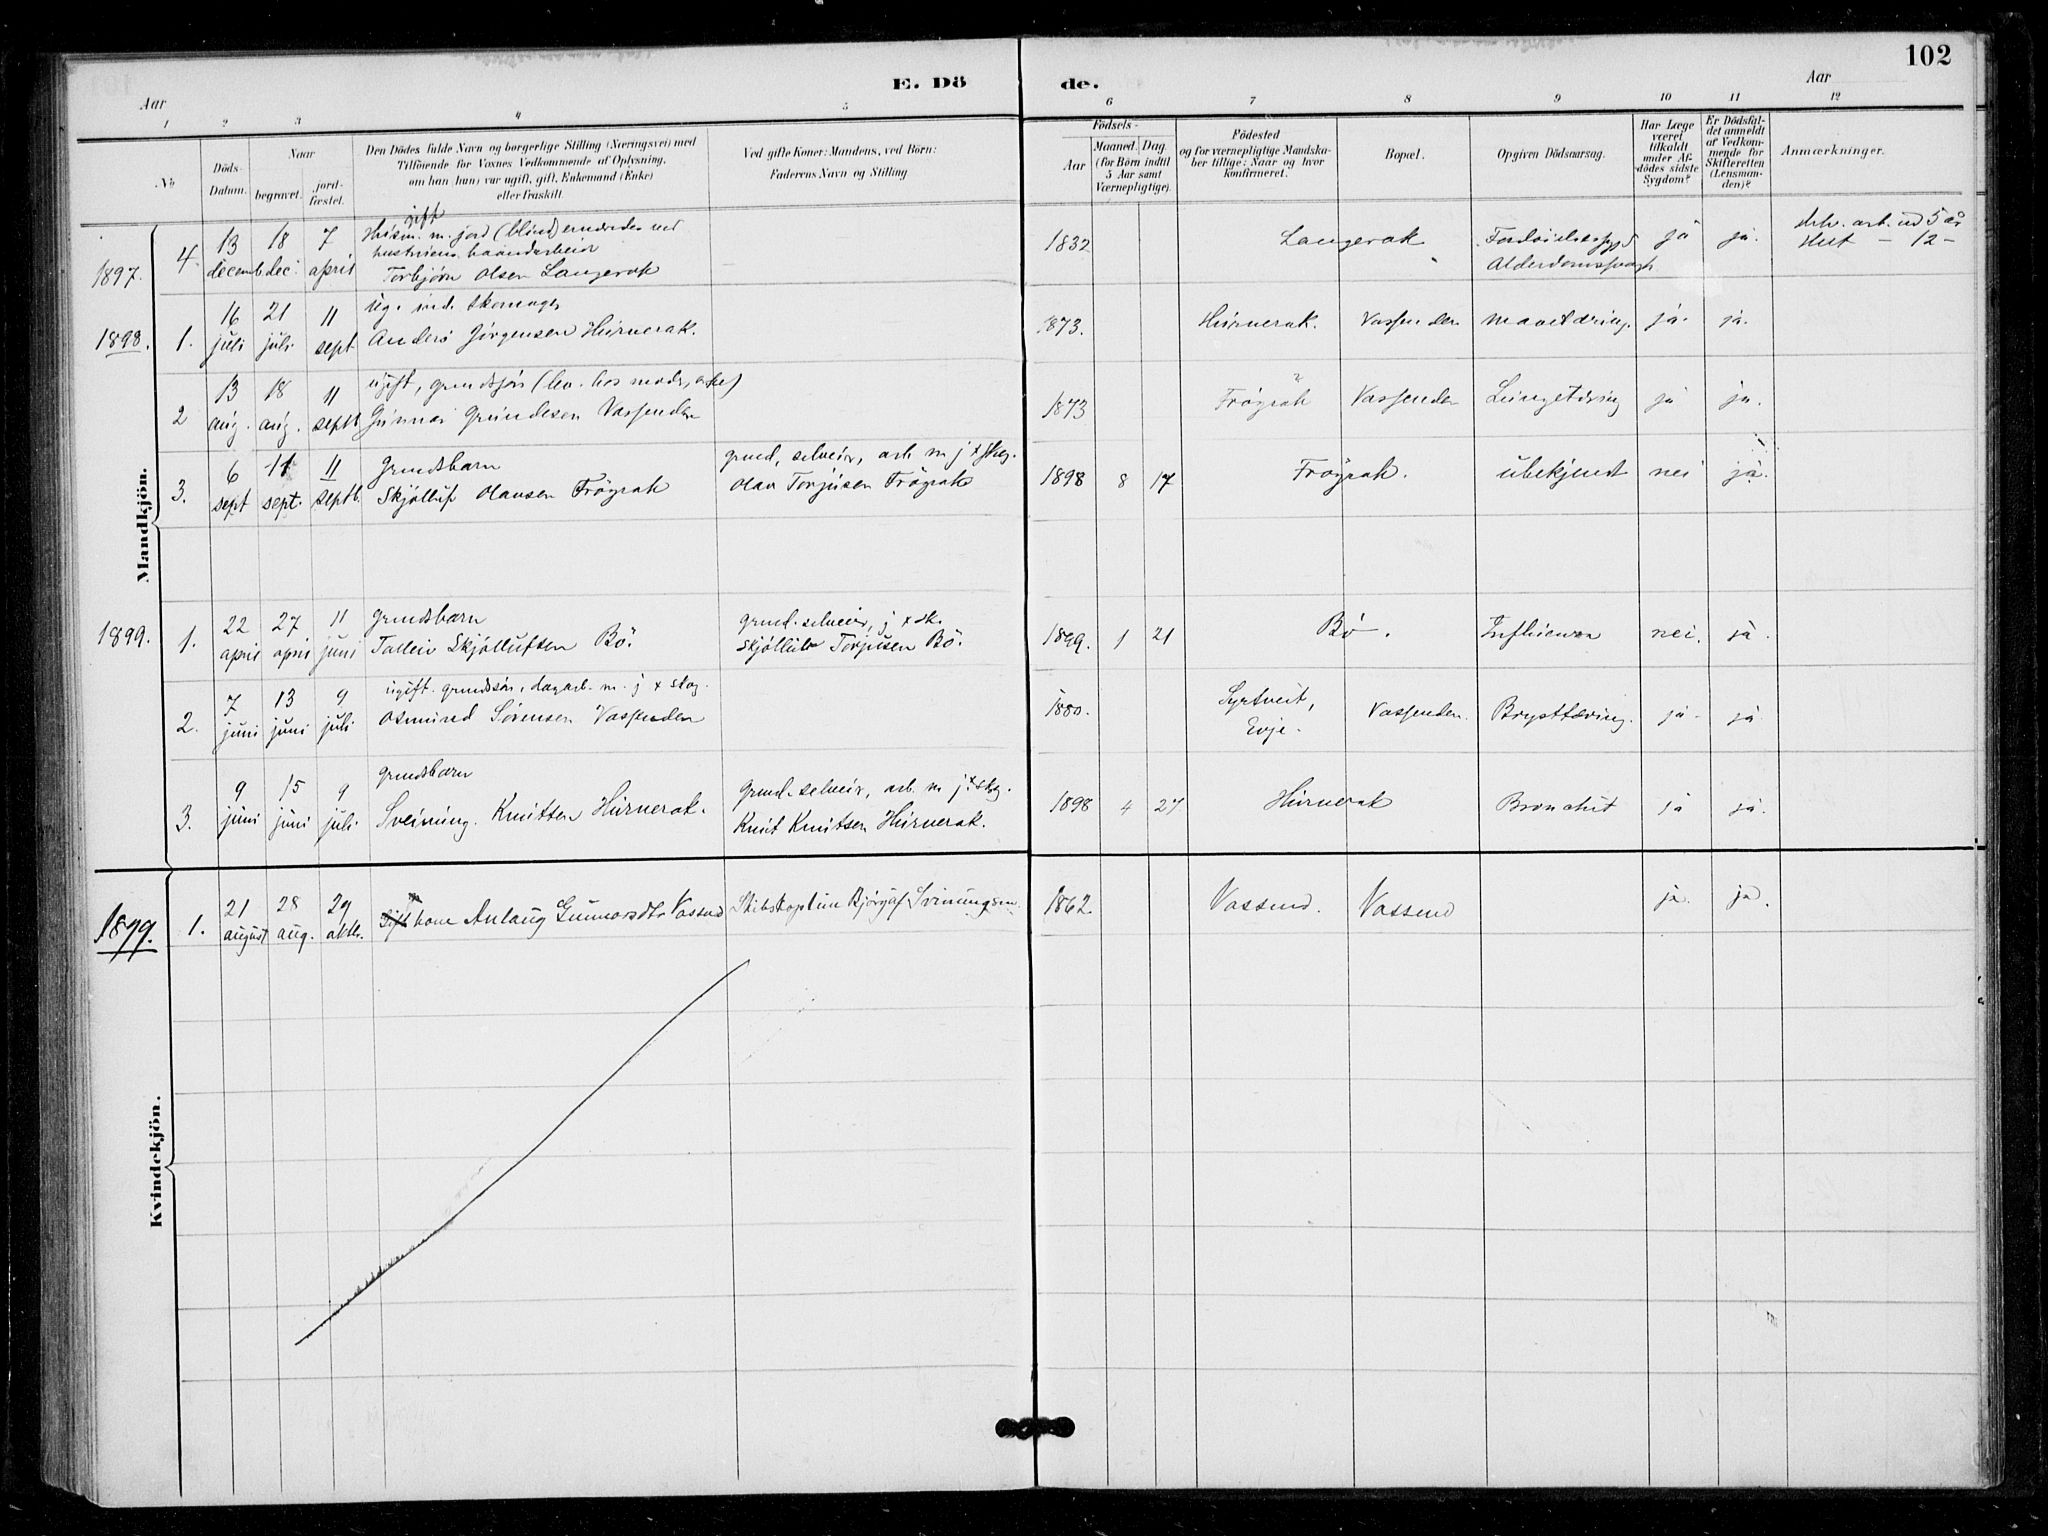 102
E. Dö de.
Aar Aar
1 2 3 4 5 6 7 8 9 10 11 12
No
Döds-
Datum.
Naar
begravet.
jord-
fæstet.
Den Dödes fulde Navn og borgerlige Stilling (Næringsvei) med
Tilföiende for Voxnes Vedkommende af Oplysning,
om han (hun) var ugift, gift, Enkemand (Enke)
eller fraskilt.
Ved gifte Koner: Mandens, ved Börn:
Faderens Navn og Stilling
Födsels-
Aar
Maaned. Dag.
(for Börn indtil
5 Aar samt
Værnepligtige).
Födested
og for værnepligtige Mandska-
ber tillige: Naar og hvor
konfirmeret.
Bopæl.
Opgiven Dödsaarsag.
Har Læge
været
tilkaldt
under Af-
dödes sidste
Sygdom?
Er Dödsfal-
det anmeldt
af Vedkom-
mende for
Skifteretten
(Lensman-
den)?
Anmærkninger.
Mandkjön.
1897. 4. 13 decemb. 18 dec. 7 april
gift
Husm. m. jord (blind) ernæredes ved
hustruens haandarbeide
Torbjørn Olsen Langerak
1832 Langerak
Alderdomssvagh
ja ja.
1898. 1. 16 juli 21 juli 11 sept
ug. ind. Skomager
Anders Jørgensen Húrnerak.
1873. Húrnerak. Vassenden ja. ja.
2 13 aug. 18 aug. 11 septb
ugift, grundsøn
Gúnnar Gúndesen Vassenden
1873 Frøyrak Vassenden Lungetæring ja ja.
3. 6 sept 11 sept. 11 septb.
Grundsbarn
Skjølluf Olavsen Frøyrak
grund, selveier, arb. m j + skog.
Olav Torjúsen Frøyrak
1898 8 17 Frøyrak. ubekjendt nei ja.
1899. 1. 22 april 27 april 11 juni
grundsbarn
Talleiv Skjøllufsen Bø.
grund. selveier, j + sk.
Skjølluv Torjúsen Bø.
1899. 1 21 Bø. Influenza nei. ja.
2. 7 juni 13 juni 9 juli
ugift. grundssøn, dagarb. m. j + skog.
Osmúnd Sørensen Vassenden
1880. Syrtveit,
Evje. Vassenden. Brysttæring. ja. ja.
3. 9 juni 15 juni 9 juli
grundsbarn
Sveinung Knútsen Húrnerak.
grund. selveier, arb. m j. + skog.
Knút Knútsen Húrnerak.
1898 4 27 Húrnerak Bronchit ja ja.
Kvindekjön.
1899. 1. 21 august 28 aug. 29 oktbr.
Gift kone Anlaug Gunnarsdtr Vassend
Skibskaptein Bjørguf Sveinungsen.
1862. Vassend. Vassend ja. ja.